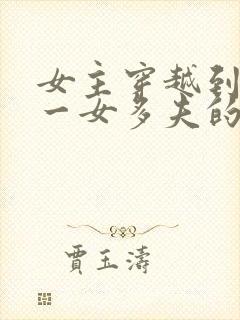 女主穿越到
一女多夫的
賈玉濤